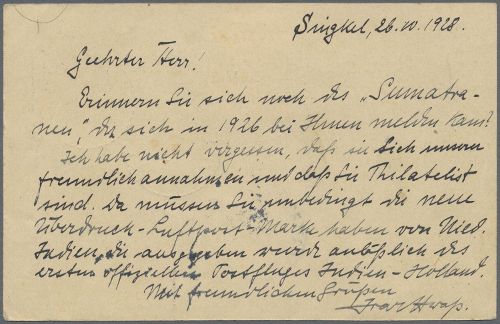 Singkel, 26.VI.1928.
Geehrter Herr!
Erinnern Sie sich noch des „Sumatra-
nen", der sich in 1926 bei Ihnen melden kam?
Ich habe nicht vergessen, daß sie sich
freundlich annahmen und daß Sie Philatelist
sind. Da müssen Sie unbedingt die neue
Überdruck-Luftpost-Marke haben von Nied.
Indien, die ausgegeben wurde anläßlich des
ersten offiziellen Postfluges Indien-Holland.
Mit freundlichen Grüßen